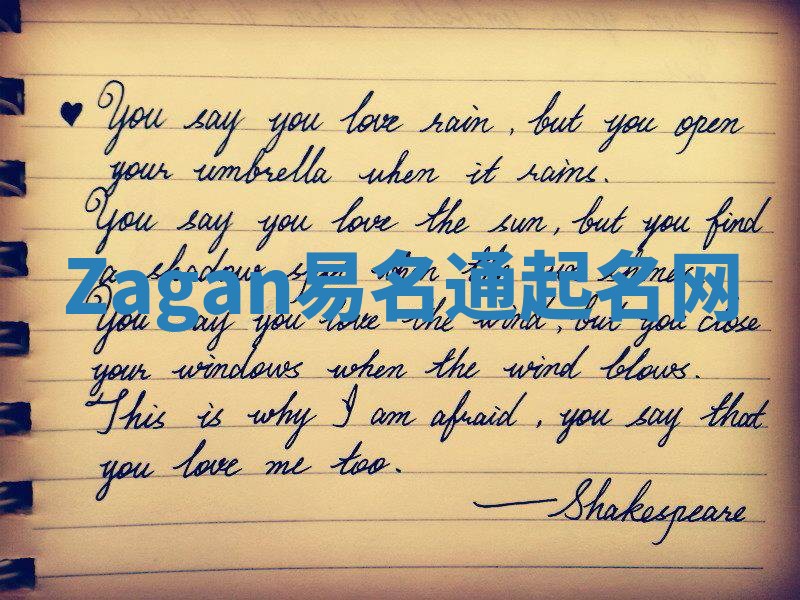 ♥ You say you love rain, but you open
your umbrella when it rains.
You say you love the sun, but you find
a shadow spot when the sun shines.
Zagan易名通起名网
You say you love the wind, but you close
your windows when the wind blows.
This is why I am afraid, you say that
you love me too.
—Shakespeare